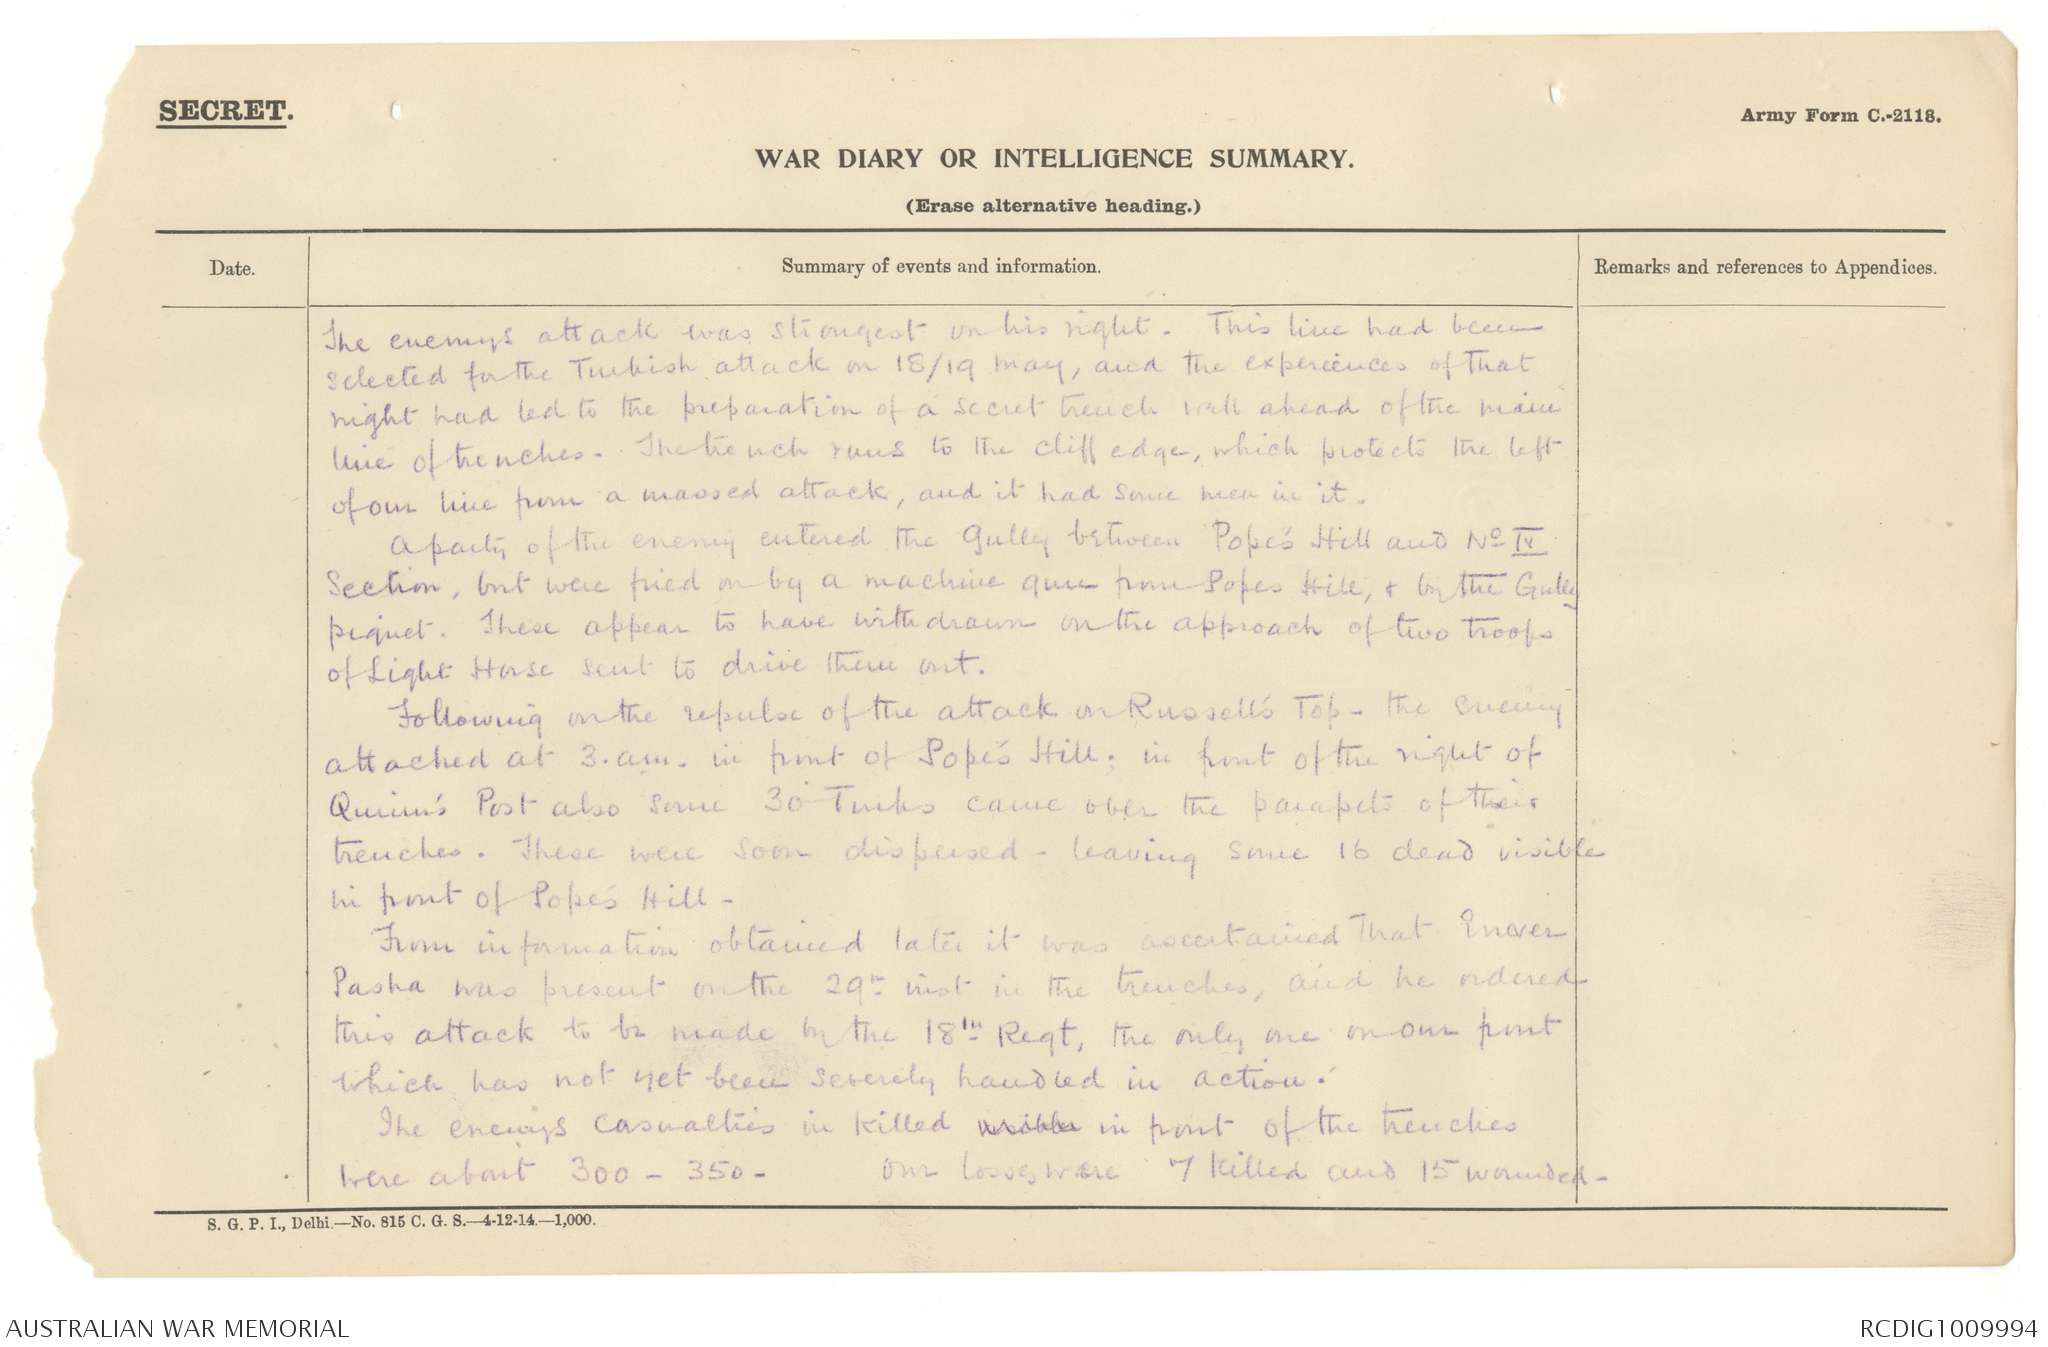 SECRET.
Army Form C.-2118.
WAR DIARY OR INTELLIGENCE SUMMARY.
(Erase alternative heading.)
Date.
Summary of events and information.
Remarks and references to Appendices.
The enemys attack was strongest on his right. This line had been
selected for the Turkish attack on 18/19 May, and the experiences of that
night had led to the preparation of a secret trench well ahead of the main
line of trenches. The trench runs to the cliff edge, which protects the left
of our line from a massed attack, and it had some men in it.
A party of the enemy entered the Gully between Pope's Hill and No IV
Section, but were fired on by a machine gun from Popes Hill, & by the Gully
piquet. These appear to have withdrawn on the approach of two troops
of Light Horse sent to drive them out.
Following on the repulse of the attack on Russell's Top - the enemy
attacked at 3.am. in front of Pope's Hill; in front of the right of
Quinn's Post also some 30 Turks came over the parapets of their
trenches. These were soon dispersed - leaving some 16 dead visible
in front of Pope's Hill -
From information obtained later it was ascertained that Enver
Pasha was present on the 29th inst in the trenches, and he ordered
this attack to be made by the 18th Regt, the only one on our front
which has not yet been severely handled in action.
The enemys casualties in killed visible in front of the trenches
were about 300 - 350 - our losses were 7 killed and 15 wounded -
S. G. P. I., Delhi.—No. 815 C. G. S.—4-12-14.—1,000.
AUSTRALIAN WAR MEMORIAL
RCDIG1009994